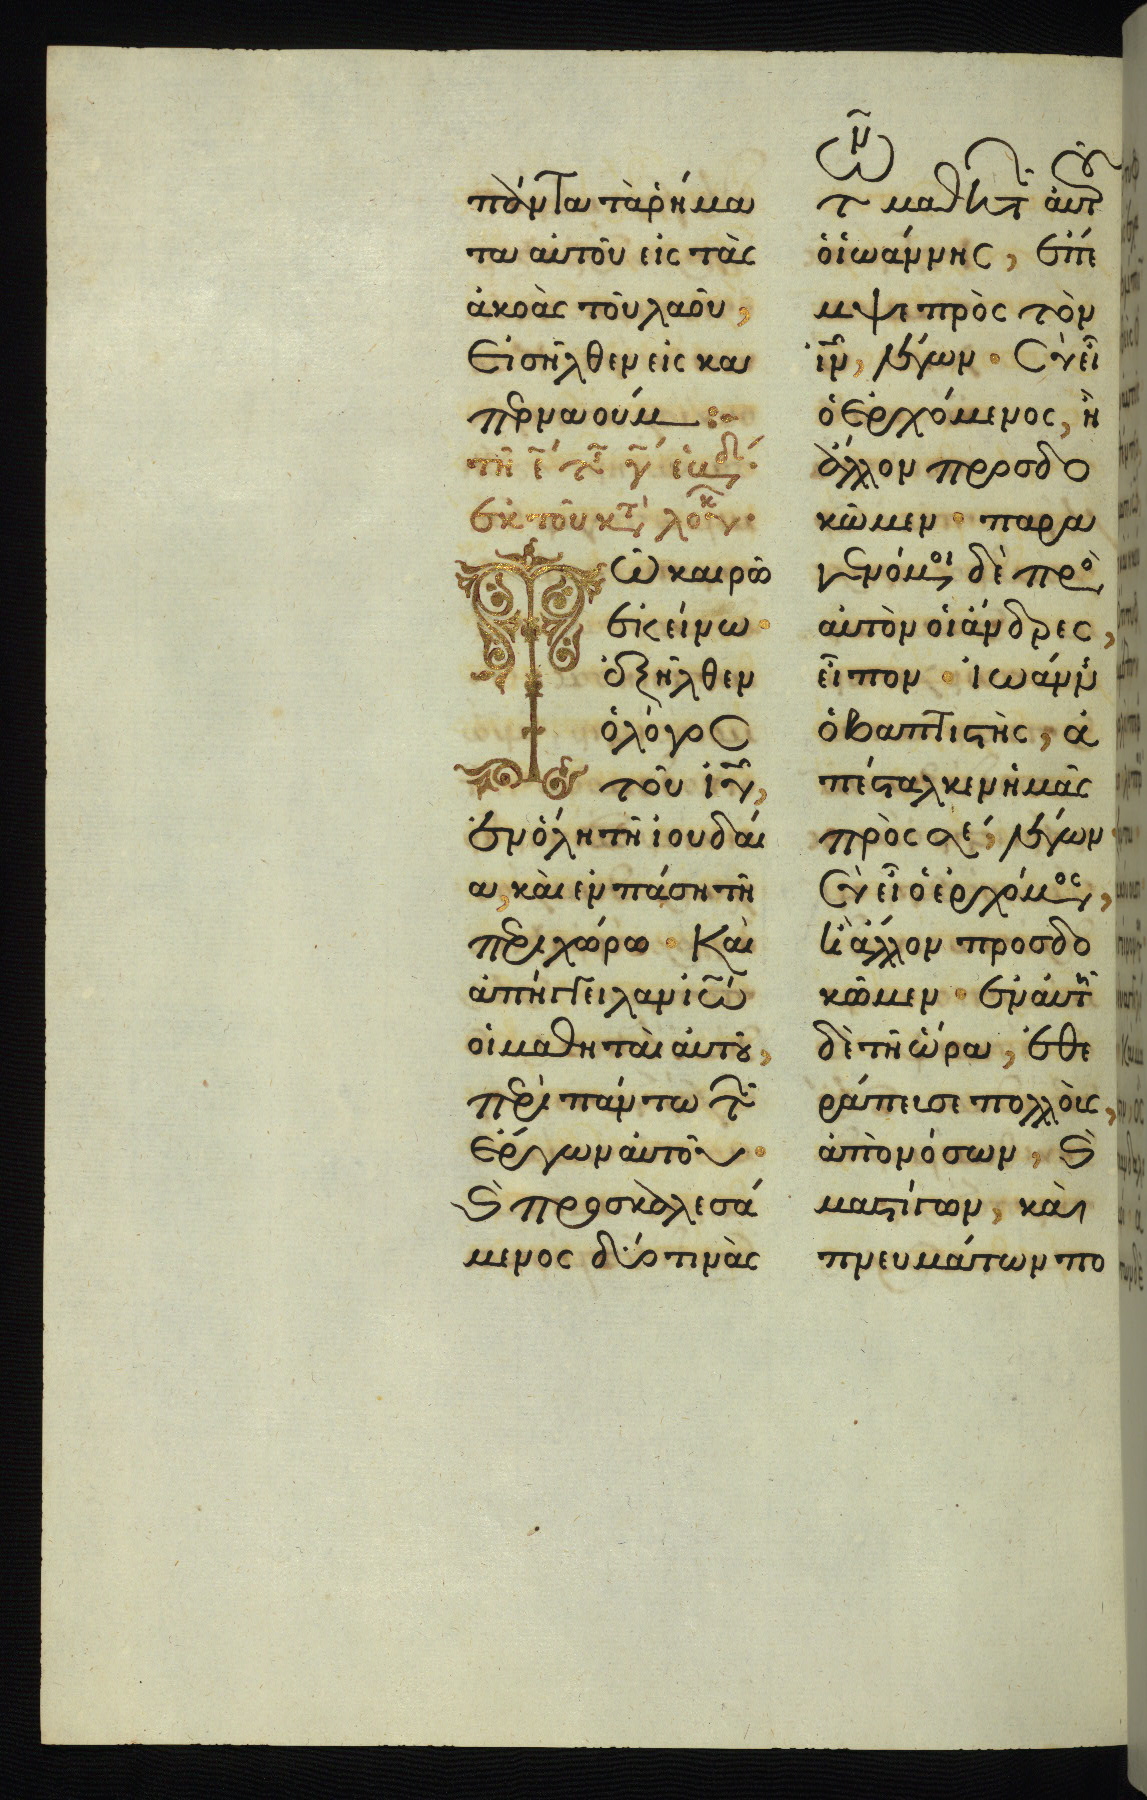 πάντα τὰ ῥήμα
τα αὐτοῦ εἰς τὰς
ἀκοὰς τοῦ λαοῦ,
Εἰσῆλθεν εἰς κα
περναούμ :
τῇ ε̄ τῆ γ̄ ἑβδ
ἐκ τοῦ κτ λουκ
Τῶ καιρῶ
ἐκείνω ·
ἐξῆλθεν
ὁ λόγος
τοῦ ἰῦ,
ἐν ὅλη τῆ ἰουδαί
α, καὶ ἐν πάση τῆ
περιχώρω · Καὶ
ἀπήγγειλαν ἰῶ
οἱ μαθηταὶ αὐτοῦ,
περὶ πάντω τ
ἔργων αὐτοῦ ·
Ϗ προσκαλεσά
μενος δύο τινὰς
τῶν μαθητῶν αὐτοῦ
ὁ ἰωάννης, ἔπε
μψε πρὸς τὸν
ἰν, λέγων · Σὺ εἶ
ὁ ἐρχόμενος, ἢ
ἄλλον προσδο
κῶμεν · παρα
γενόμοι δὲ πρὸ
αὐτὸν οἱ ἄνδρες,
εἶπον · ἰωάνν
ὁ βαπτιστὴς, ἀ
πέσταλκεν ἡμᾶς
πρὸς σέ, λέγων
Σὺ εἶ ὁ ἐρχόμος,
ἢ ἄλλον προσδο
κῶμεν · ἐν αὐτῆ
δὲ τῆ ὥρα, ἐθε
ράπευσε πολλοὺς,
ἀπὸ νόσων, Ϗ
μαστίγων, καὶ
πνευμάτων πο